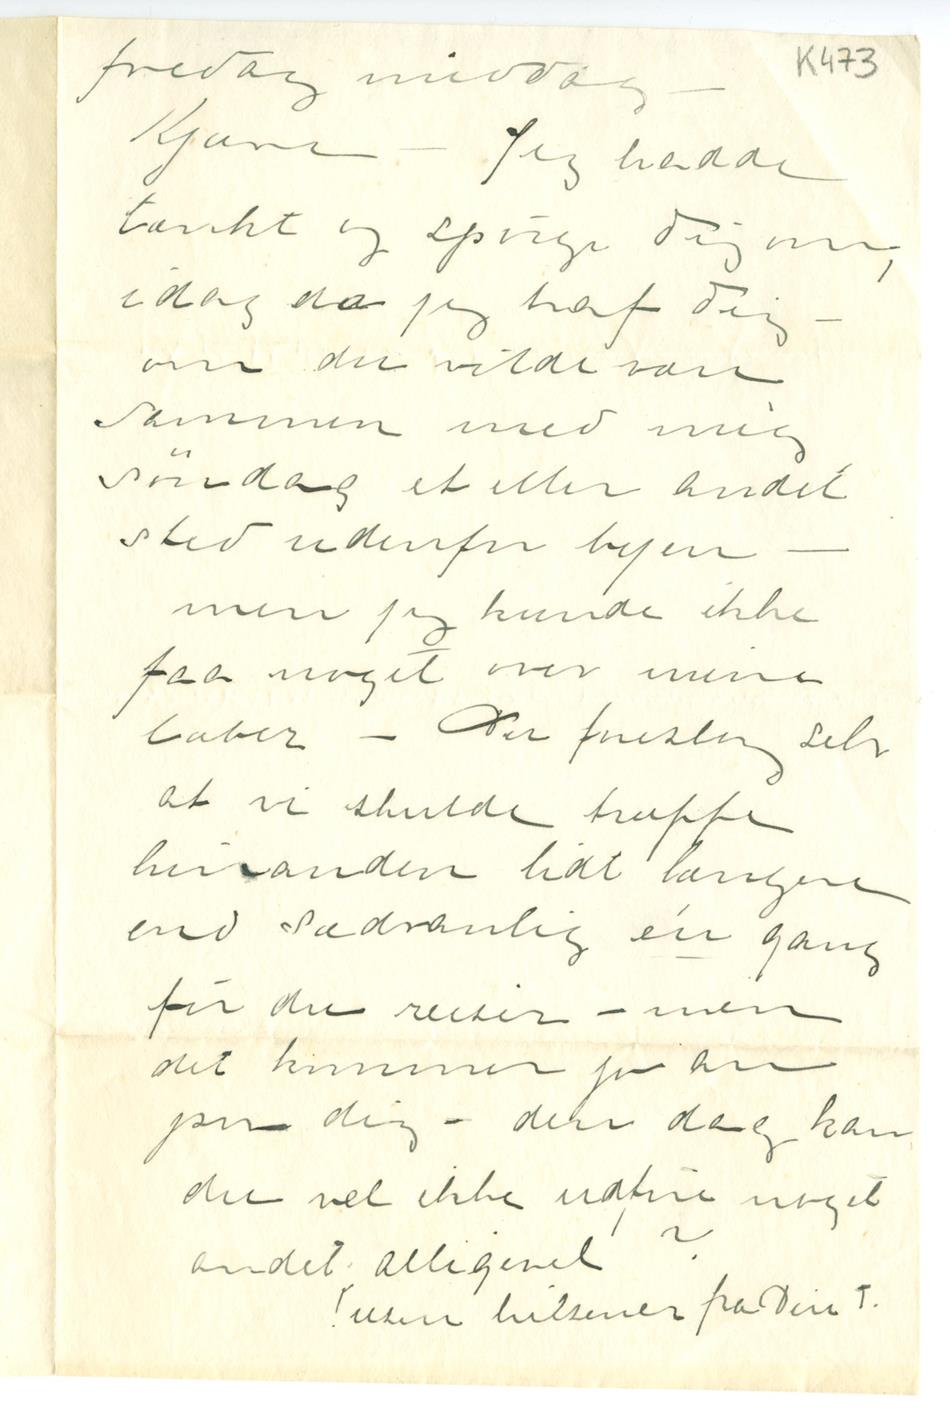 K473
fredag middag –
Kjære – Jeg hadde
tænkt og spørge Dig om,
idag da jeg traf Dig –
om du vilde være
sammen med mig
söndag et eller andet
sted udenfor byen –
men jeg kunde ikke
faa noget over mine
læber – Du foreslog selv
at vi skulde træffe
hinanden lidt længere
end sædvanlig én gang
før du reiser – men
det kommer jo an
paa dig – den dag kan
du vel ikke udføre noget
andet alligevel ?
Tusen hilsener fra Din T.